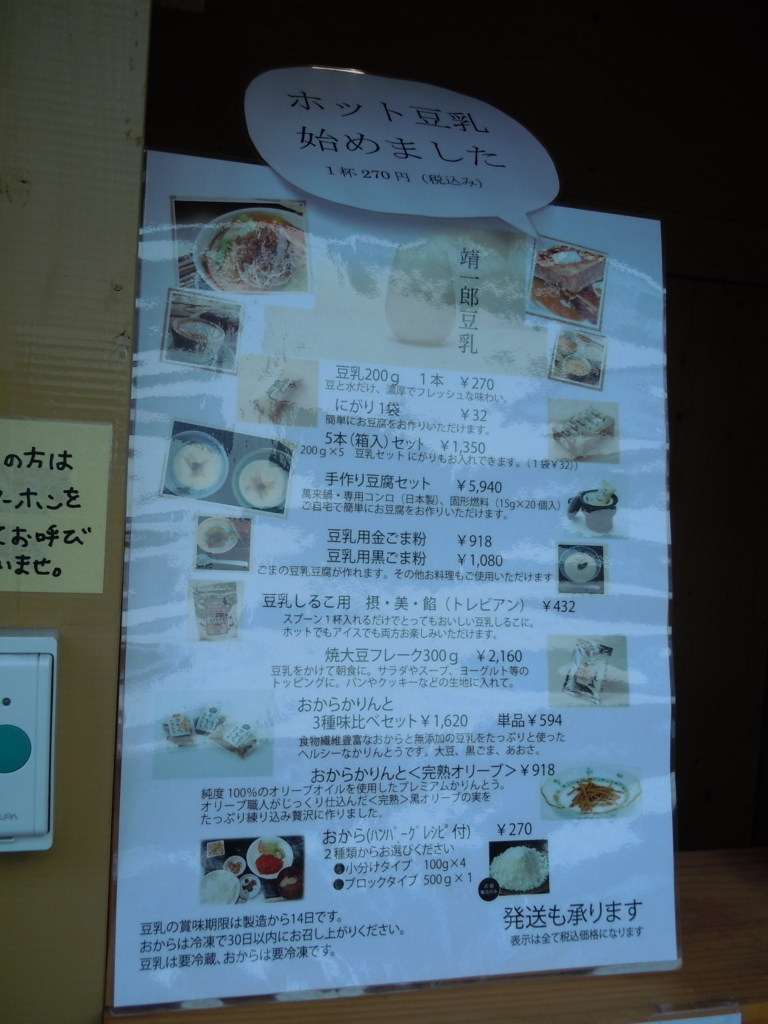 ホット豆乳
始めました
1杯270円（税込み）
靖一郎豆乳
豆乳200g　1本　￥270
豆と水だけ、濃厚でフレッシュな味わい。
にがり1袋　￥32
簡単にお豆腐をお作りいただけます。
5本（箱入）セット　￥1,350
200g×5　豆乳セットにがりもお入れできます。（1袋￥32））
手作り豆腐セット　￥5,940
萬来鍋・専用コンロ（日本製）、固形燃料（15g×20個入）
ご自宅で簡単にお豆腐をお作りいただけます。
豆乳用金ごま粉　￥918
豆乳用黒ごま粉　￥1,080
ごまの豆乳豆腐が作れます。その他お料理もご使用いただけます
豆乳しるこ用　摂・美・餡（トレビアン）　￥432
スプーン1杯入れるだけでとってもおいしい豆乳しるこに。
ホットでもアイスでも両方お楽しみいただけます。
焼大豆フレーク300g　￥2,160
豆乳をかけて朝食に。サラダやスープ、ヨーグルト等の
トッピングに。パンやクッキーなどの生地に入れて。
おからかりんと
3種味比べセット￥1,620　単品￥594
食物繊維豊富なおからと無添加の豆乳をたっぷりと使った
ヘルシーなかりんとうです。大豆、黒ごま、あおさ。
おからかりんと＜完熟オリーブ＞￥918
純度100%のオリーブオイルを使用したプレミアムかりんとう。
オリーブ職人がじっくり仕込んだ＜完熟＞黒オリーブの実を
たっぷり練り込み贅沢に作りました。
おから(ﾊﾝﾊﾞｰｸﾞﾚｼﾋﾟ付)　￥270
2種類からお選びください
●小分けタイプ　100g×4
●ブロックタイプ　500g×1
豆乳の賞味期限は製造から14日です。
おからは冷凍で30日以内にお召し上がりください。
豆乳は要冷蔵、おからは要冷凍です。
発送も承ります
表示は全て税込価格になります
の方は
ーホンを
てお呼び
いませ。